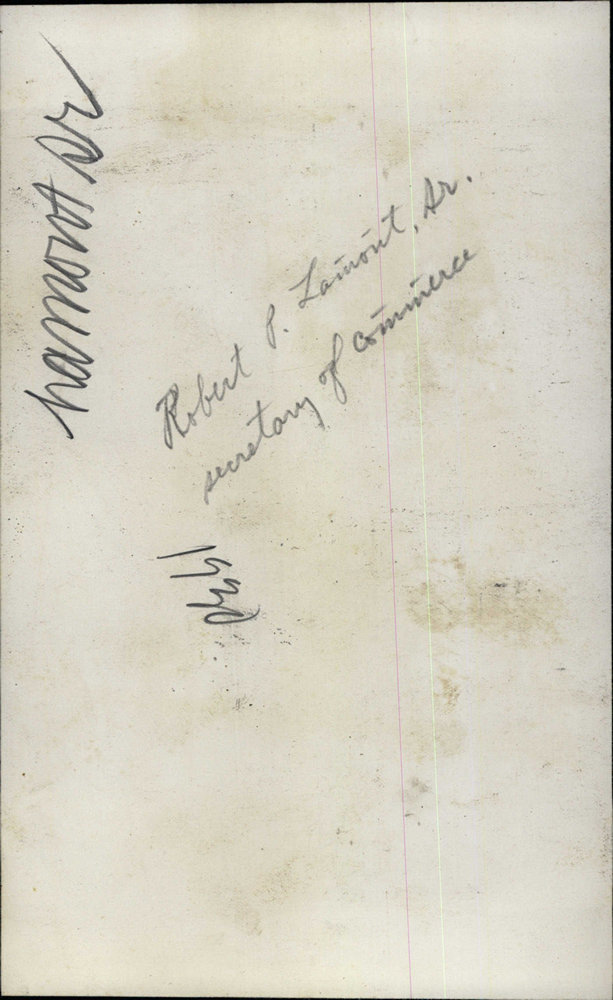 Lamont Sr
Robert P. Lamont, Sr.
secretary of commerce